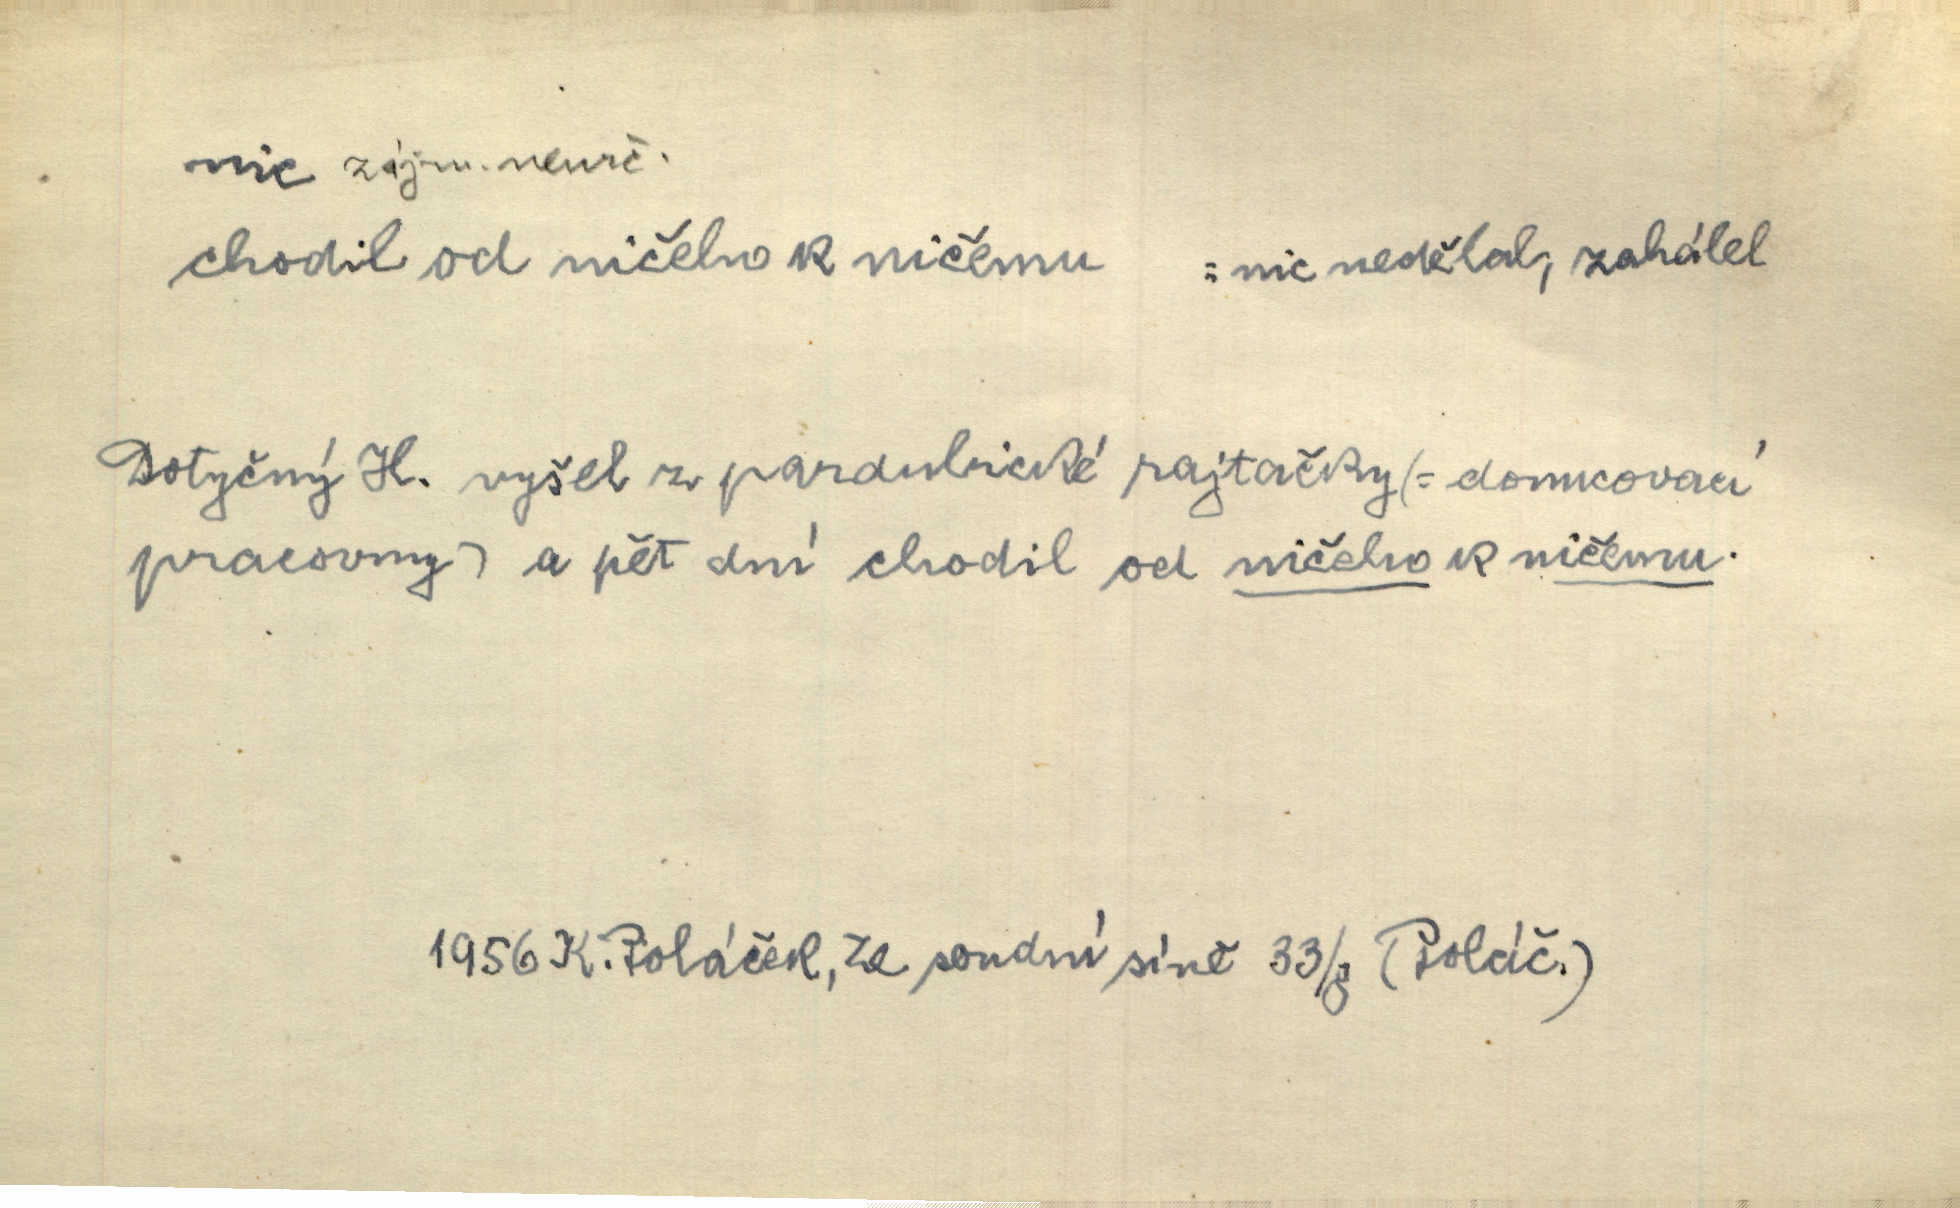 nic zájm. neurč.
chodil od ničeho k ničemu = nic nedělal, zahálel
Dotyčný H. vyšel z pardubické rajtačky (= donucovací
pracovny) a pět dní chodil od ničeho k ničemu.
1956 K. Poláček, Ze soudní síně 33/3 (Poláč.)